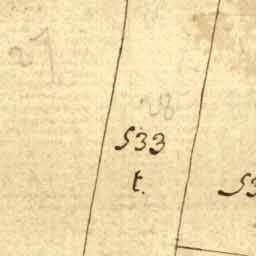 27
28
533
t.
53